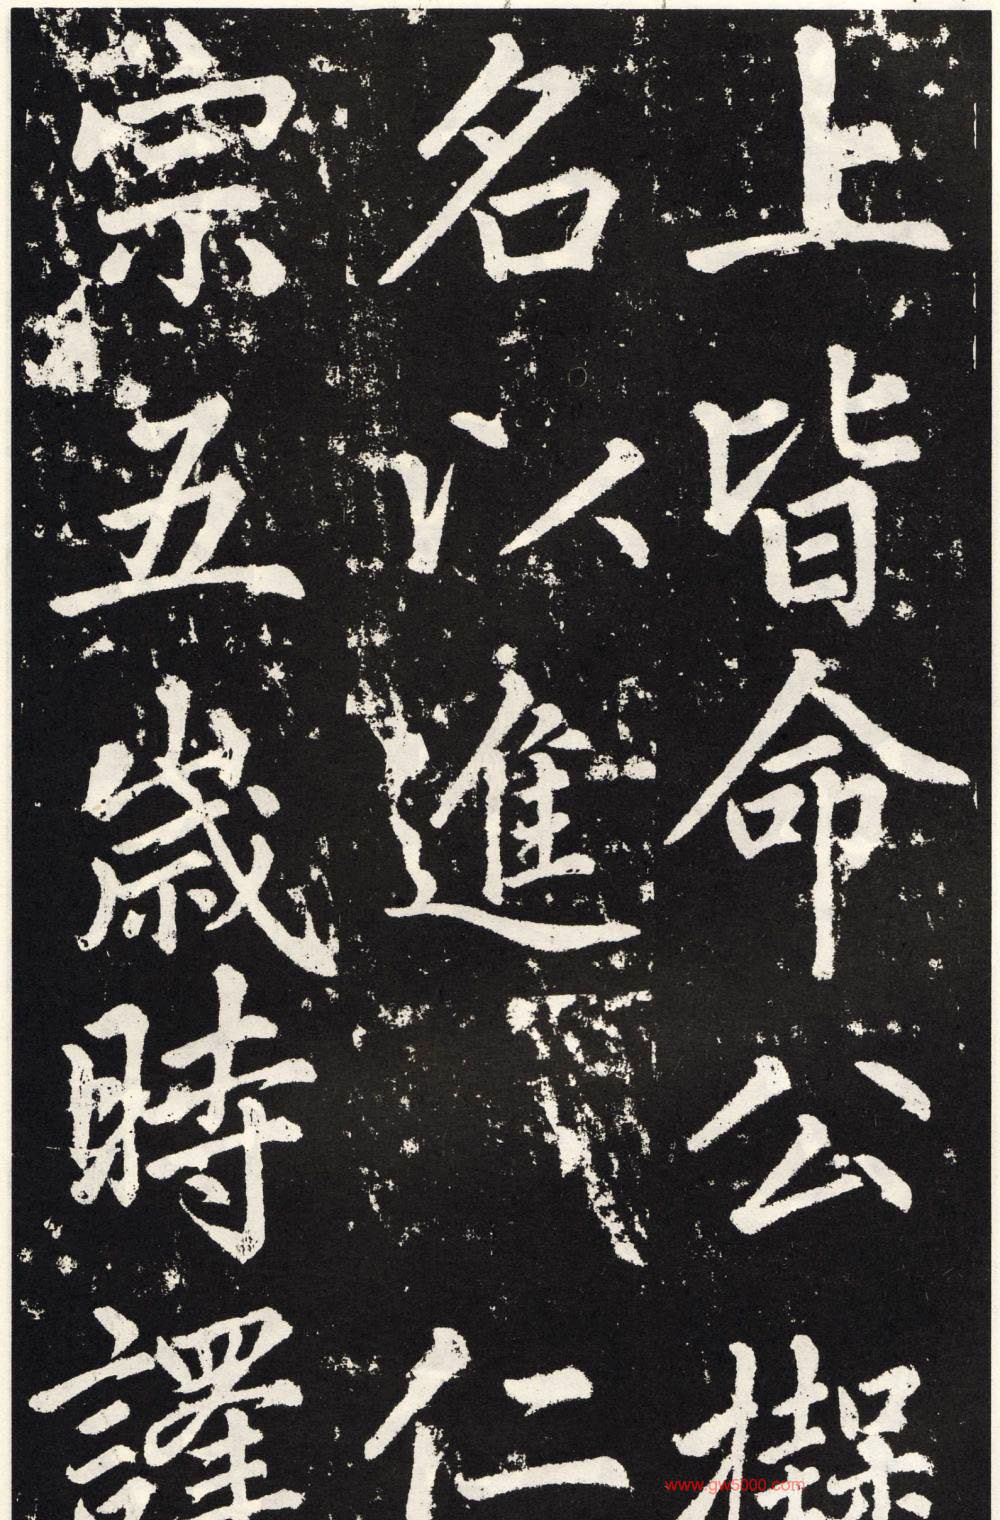 上皆命公
名以進仁
宗五歲時
www.gw5000.com